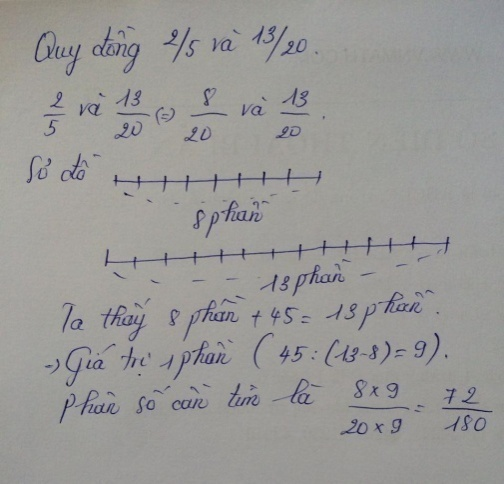 Quy đồng 2/5 và 13/20.
2/5 và 13/20 (=) 8/20 và 13/20.
Sơ đồ
8 phần
13 phần
Ta thấy 8 phần + 45 = 13 phần.
-> Giá trị 1 phần ( 45 : (13-8) = 9).
Phân số cần tìm là 8 x 9 / 20 x 9 = 72 / 180